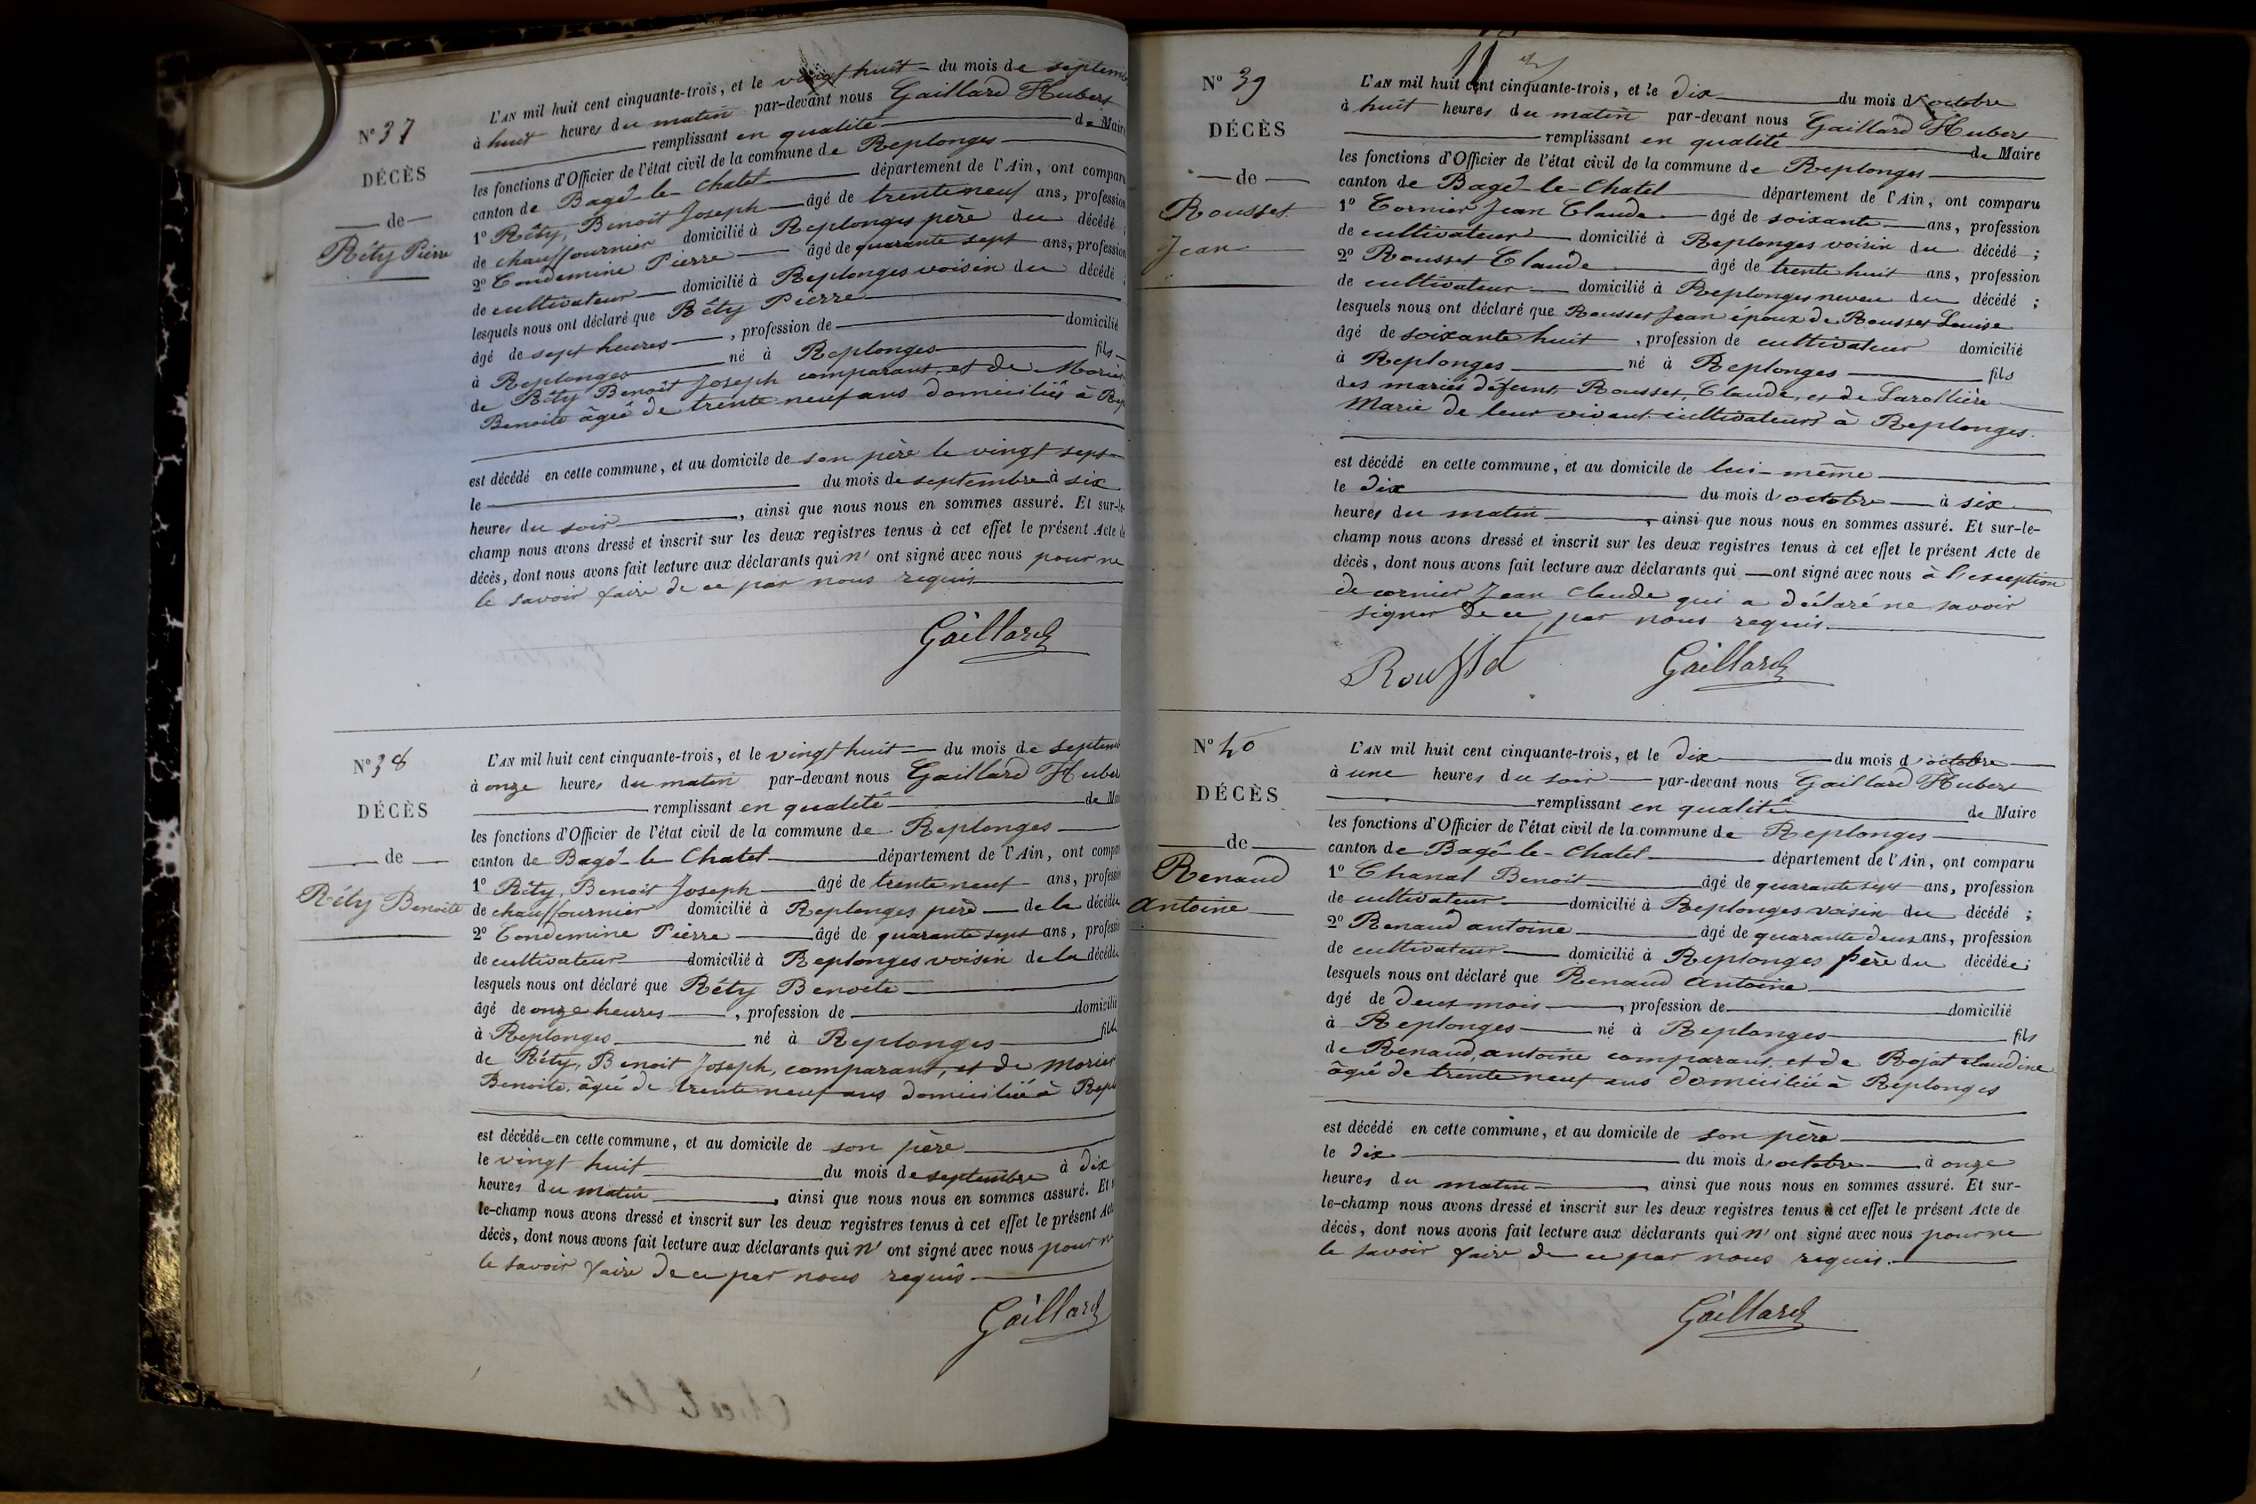 N° 37
DÉCÈS
de
Réty Pierre
L'AN mil huit cent cinquante-trois, et le vingt huit du mois de septemb
à huit heures du matin par-devant nous Gaillard Hubert
remplissant en qualité de Maire
les fonctions d'Officier de l'état civil de la commune de Replonges
canton de Bagé-le-Chatel département de l'Ain, ont comparu
1° Réty, Benoît Joseph âgé de trente neuf ans, profession
de chauffournier domicilié à Replonges père du décédé ;
2° Condemine Pierre âgé de quarante sept ans, profession
de cultivateur domicilié à Replonges voisin du décédé ;
lesquels nous ont déclaré que Réty Pierre
âgé de sept heures , profession de domicilié
à Replonges né à Replonges fils
de Réty Benoît Joseph comparant, et de Morier
Benoite âgée de trente neuf ans domiciliés à Rep
est décédé en cette commune, et au domicile de son père le vingt sept
le du mois de septembre à six
heures du soir , ainsi que nous nous en sommes assuré. Et sur-le-
champ nous avons dressé et inscrit sur les deux registres tenus à cet effet le présent Acte de
décès, dont nous avons fait lecture aux déclarants qui n' ont signé avec nous pour ne
le savoir faire de ce par nous requis
Gaillard
N° 38
DÉCÈS
de
Réty Benoite
L'AN mil huit cent cinquante-trois, et le vingt huit du mois de septemb
à onze heures du matin par-devant nous Gaillard Huber
remplissant en qualité de Mai
les fonctions d'Officier de l'état civil de la commune de Replonges
canton de Bagé-le-Chatel département de l'Ain, ont compar
1° Réty, Benoit Joseph âgé de trente neuf ans, profession
de chauffournier domicilié à Replonges père de la décédée
2° Condemine Pierre âgé de quarante sept ans, profession
de cultivateur domicilié à Replonges voisin de la décédée
lesquels nous ont déclaré que Réty Benoite
âgé de onze heures , profession de domicilié
à Replonges né à Replonges fille
de Réty, Benoit Joseph, comparant, et de Morier
Benoite, âgée de trente neuf ans domiciliée à Repl
est décédée en cette commune, et au domicile de son père
le vingt huit du mois de septembre à dix
heures du matin , ainsi que nous nous en sommes assuré. Et
le-champ nous avons dressé et inscrit sur les deux registres tenus à cet effet le présent Acte
décès, dont nous avons fait lecture aux déclarants qui n' ont signé avec nous pour n
le savoir faire de ce par nous requis
Gaillard
N° 39
DÉCÈS
de
Rousset
Jean
L'AN mil huit cent cinquante-trois, et le dix du mois d'octobre
à huit heures du matin par-devant nous Gaillard Hubert
remplissant en qualité de Maire
les fonctions d'Officier de l'état civil de la commune de Replonges
canton de Bagé-le-Chatel département de l'Ain, ont comparu
1° Cornier Jean Claude âgé de soixante ans, profession
de cultivateur domicilié à Replonges voisin du décédé ;
2° Rousset Claude âgé de trente huit ans, profession
de cultivateur domicilié à Replonges neveu du décédé ;
lesquels nous ont déclaré que Rousset Jean époux de Rousset Louise
âgé de soixante huit , profession de cultivateur domicilié
à Replonges né à Replonges fils
des mariés défunt Rousset, Claude, et de Larollière
Marie de leur vivant cultivateurs à Replonges.
est décédé en cette commune, et au domicile de lui-même
le dix du mois d'octobre à six
heures du matin , ainsi que nous nous en sommes assuré. Et sur-le-
champ nous avons dressé et inscrit sur les deux registres tenus à cet effet le présent Acte de
décès, dont nous avons fait lecture aux déclarants qui ont signé avec nous à l'exception
de cornier Jean Claude qui a déclaré ne savoir
signer de ce par nous requis
Rousset Gaillard
N° 40
DÉCÈS
de
Renaud
Antoine
L'AN mil huit cent cinquante-trois, et le dix du mois d'octobre
à une heures du soir par-devant nous Gaillard Hubert
remplissant en qualité de Maire
les fonctions d'Officier de l'état civil de la commune de Replonges
canton de Bagé-le-Chatel département de l'Ain, ont comparu
1° Chanal Benoit âgé de quarante sept ans, profession
de cultivateur domicilié à Replonges voisin du décédé ;
2° Renaud antoine âgé de quarante deux ans, profession
de cultivateur domicilié à Replonges père du décédé ;
lesquels nous ont déclaré que Renaud Antoine
âgé de deux mois , profession de domicilié
à Replonges né à Replonges fils
de Renaud, antoine comparant, et de Rojat claudine
âgée de trente neuf ans domiciliée à Replonges
est décédé en cette commune, et au domicile de son père
le dix du mois d'octobre à onze
heures du matin , ainsi que nous nous en sommes assuré. Et sur-
le-champ nous avons dressé et inscrit sur les deux registres tenus à cet effet le présent Acte de
décès, dont nous avons fait lecture aux déclarants qui n' ont signé avec nous pour ne
le savoir faire de ce par nous requis.
Gaillard